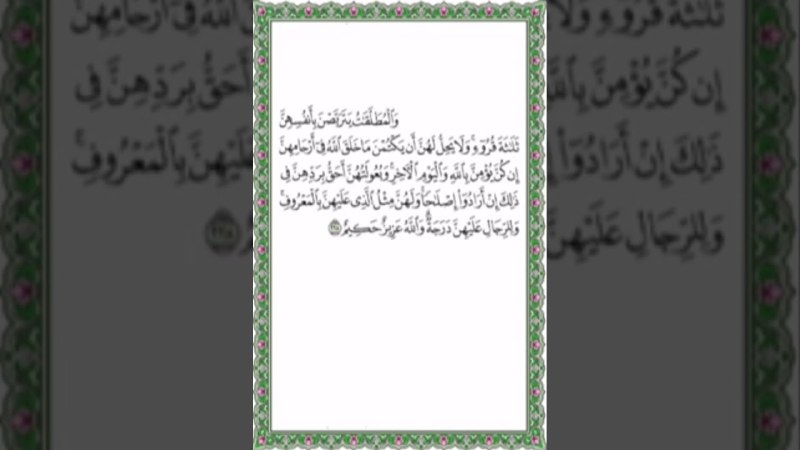 وَٱلْمُطَلَّقَٰتُ يَتَرَبَّصْنَ بِأَنفُسِهِنَّ
ثَلَٰثَةَ قُرُوٓءٍ ۚ وَلَا يَحِلُّ لَهُنَّ أَن يَكْتُمْنَ مَا خَلَقَ ٱللَّهُ فِىٓ أَرْحَامِهِنَّ
إِن كُنَّ يُؤْمِنَّ بِٱللَّهِ وَٱلْيَوْمِ ٱلْءَاخِرِ ۚ وَبُعُولَتُهُنَّ أَحَقُّ بِرَدِّهِنَّ فِى
ذَٰلِكَ إِنْ أَرَادُوٓا۟ إِصْلَٰحًا ۚ وَلَهُنَّ مِثْلُ ٱلَّذِى عَلَيْهِنَّ بِٱلْمَعْرُوفِ ۚ
وَلِلرِّجَالِ عَلَيْهِنَّ دَرَجَةٌ ۗ وَٱللَّهُ عَزِيزٌ حَكِيمٌ ٢٢٨